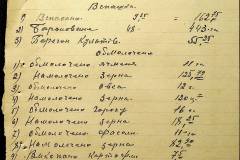 Вспашка
1) Вспахано 9,25 = 112 га
2) Бороновка 48 - 443 га
3) Перегон Культив. 55,25
Обмолочено
1) обмолочено ячменя 11 га
2) Намолочено зерна 125,
3) обмолочено овса 12 г.
4) Намолочено зерна 120 ц.
5) обмолочено гороху 16 г.
6) Намолочено зерна 18,25
7) обмолочено фасоли 11 -
8) Намолочено зерна 82,
9) Выкопано картофеля